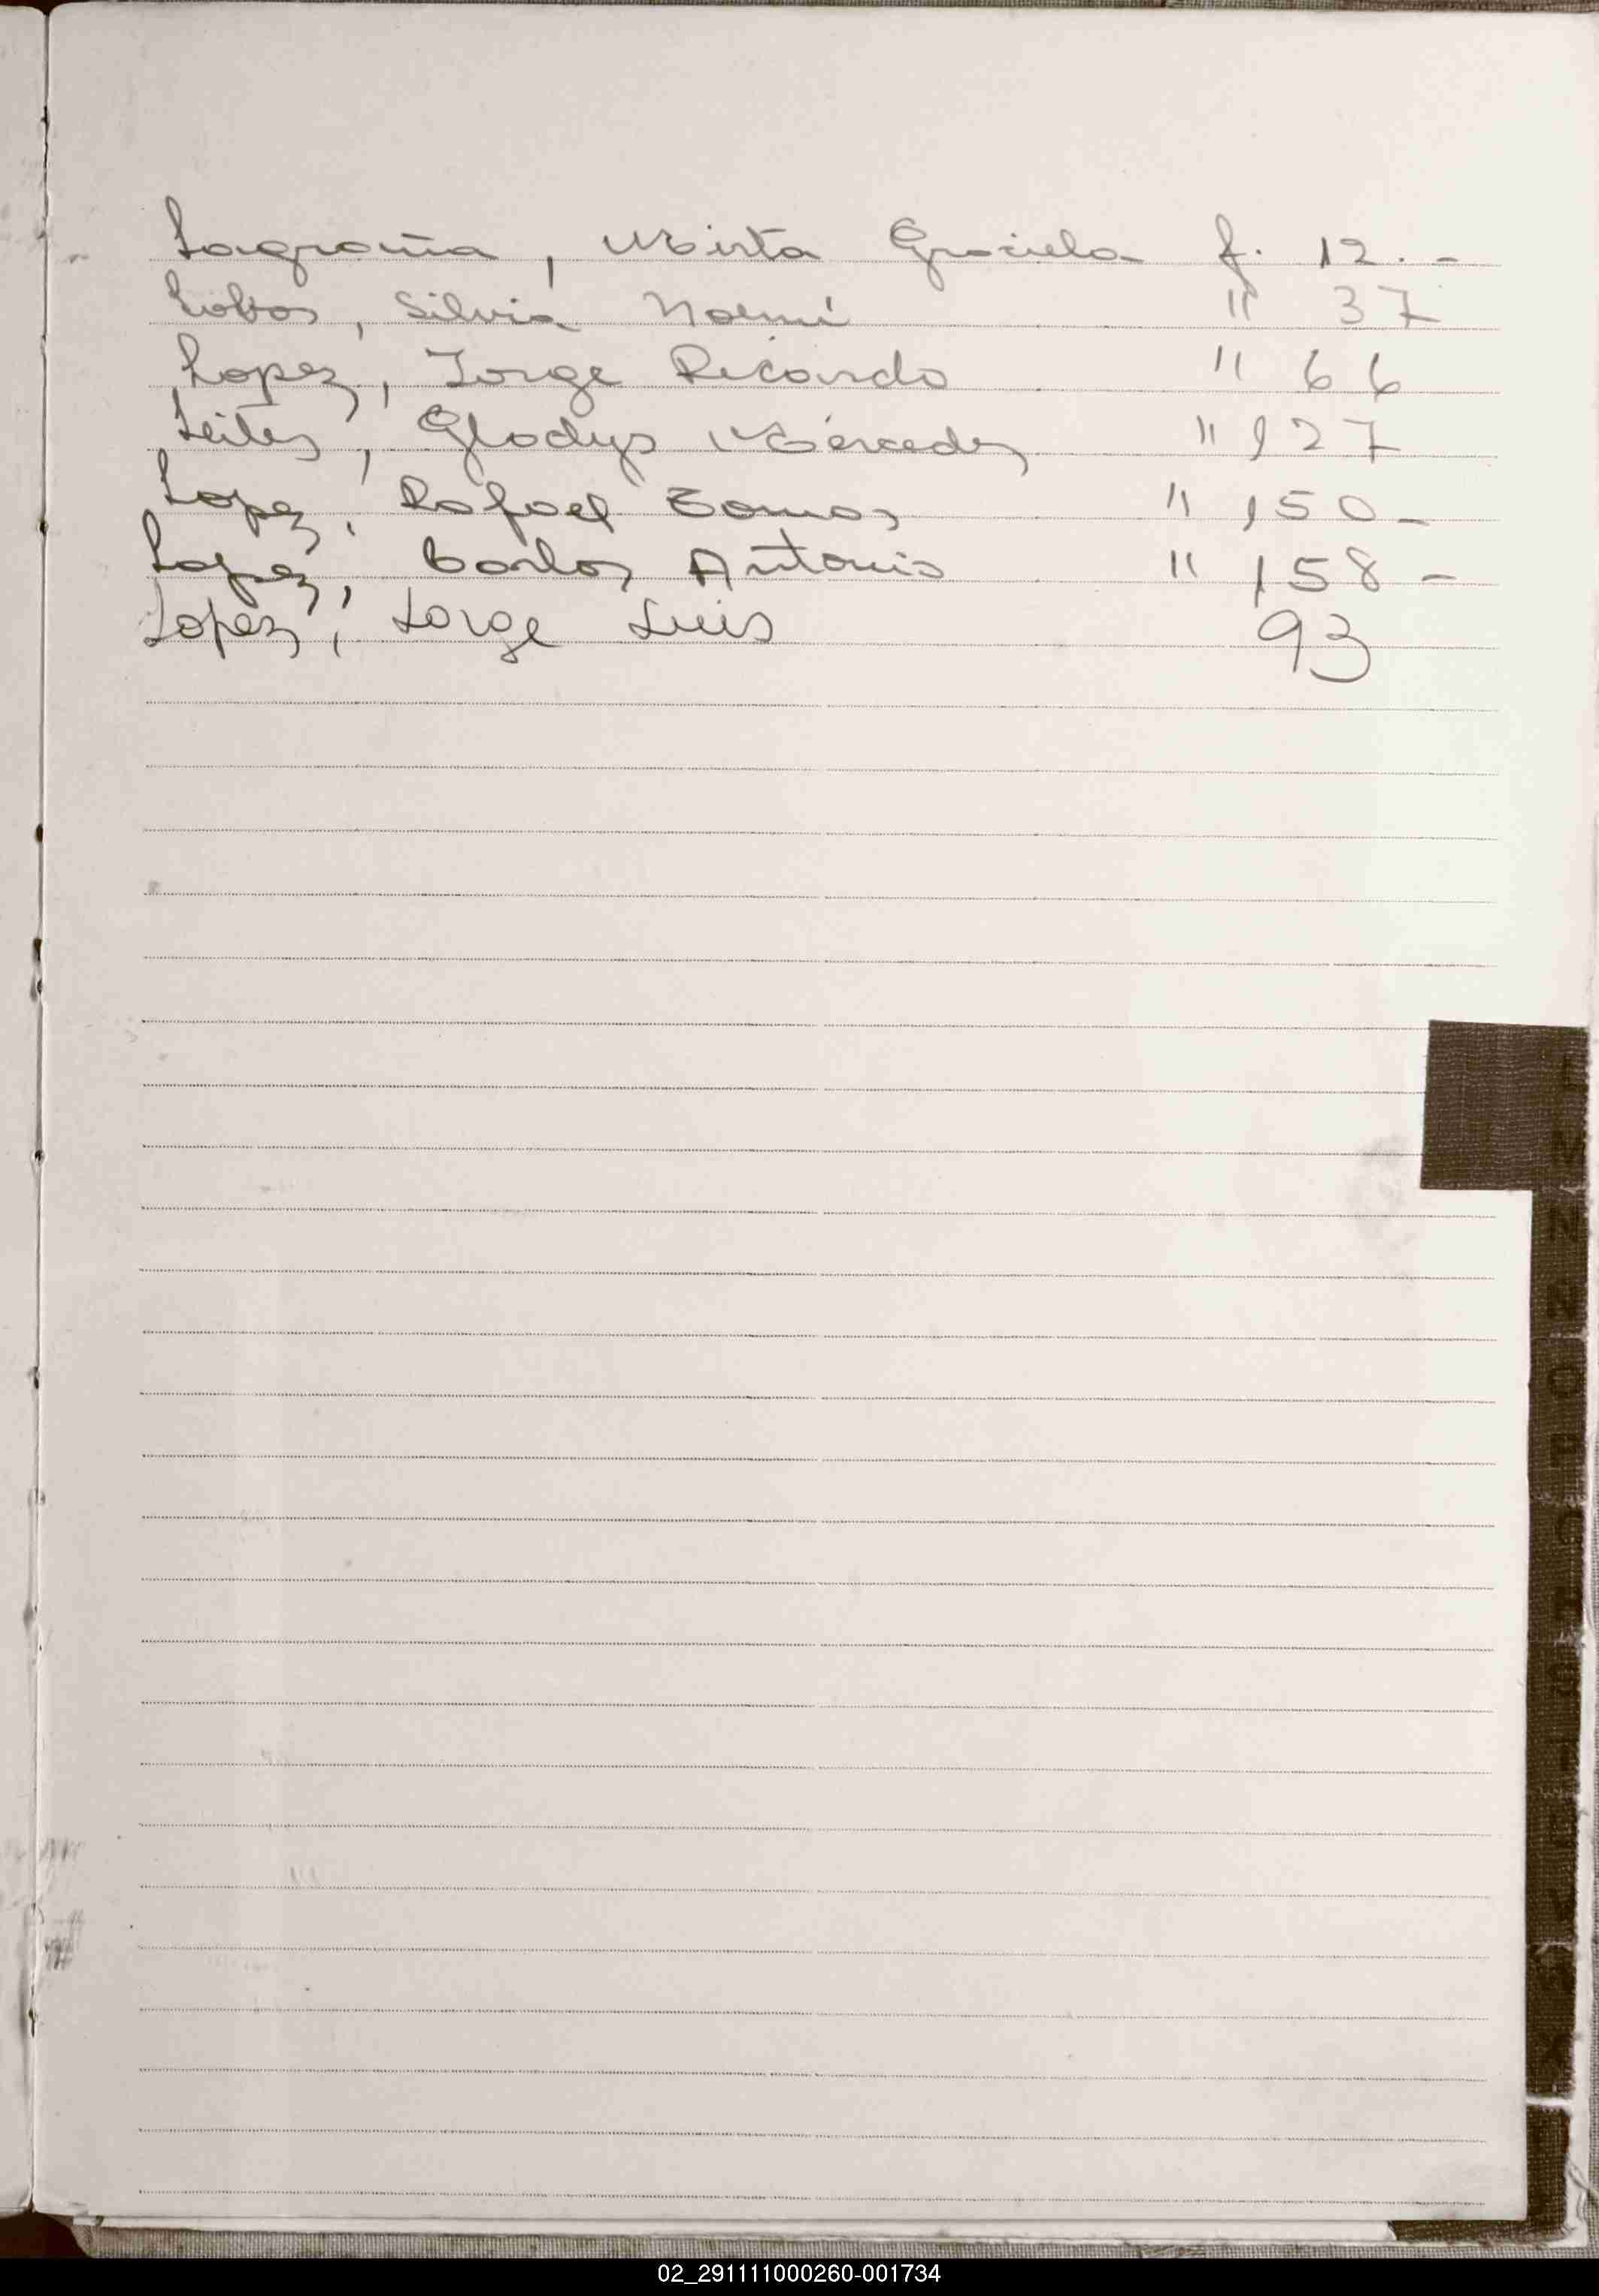 Lagraña, Mirta Graciela f. 12.-
Lobos, Silvia Noemí " 37
Lopez, Jorge Ricardo " 66
Leites, Gladys Mercedes " 127
Lopez, Rafael Tomas " 150-
Lopez, Carlos Antonio " 158-
Lopez, Jorge Luis 93
L
M
N
Ñ
O
P
Q
02_291111000260-001734